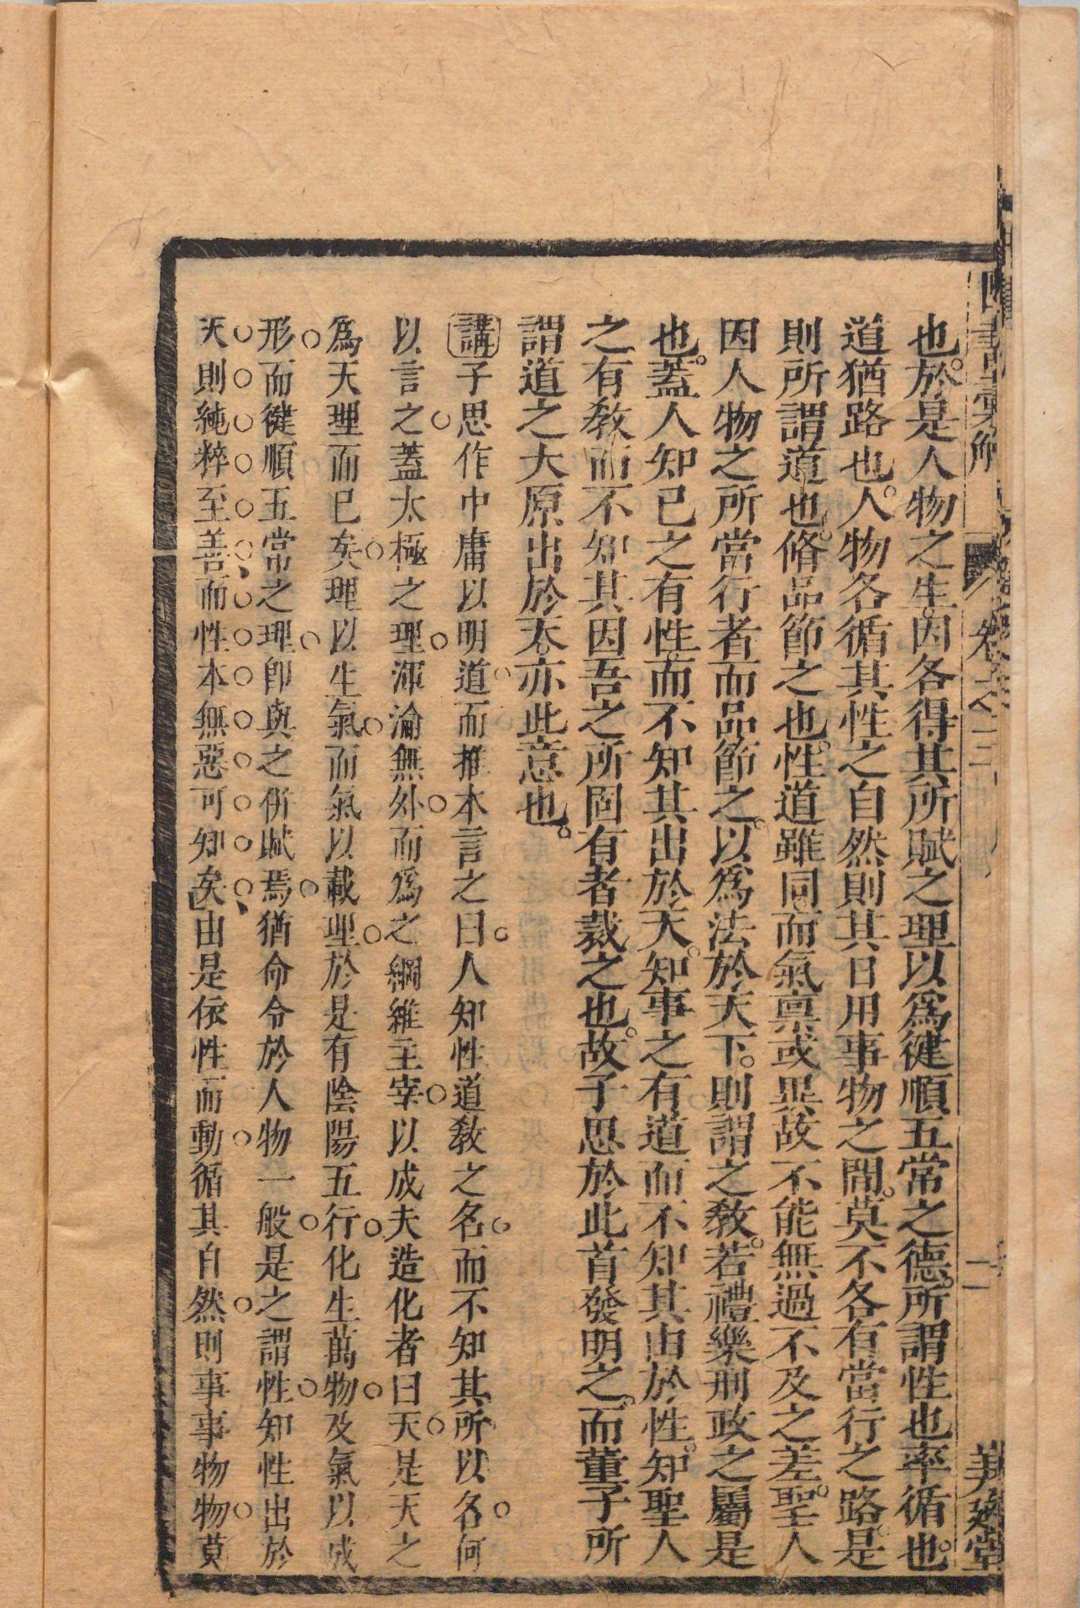 也於是人物之生因各得其所賦之理以爲健順五常之德所謂性也率循也
道猶路也人物各循其性之自然則其日用事物之間莫不各有當行之路是
則所謂道也脩品節之也性道雖同而氣禀或異故不能無過不及之差聖人
因人物之所當行者而品節之以爲法於天下則謂之教若禮樂刑政之屬是
也蓋人知已之有性而不知其出於天知事之有道而不知其由於性知聖人
之有教而不知其因吾之所固有者裁之也故子思於此首發明之而董子所
謂道之大原出於天亦此意也
講子思作中庸以明道而推本言之曰人知性道教之名而不知其所以名何
以言之蓋太極之理渾淪無外而爲之綱維主宰以成夫造化者曰天是天之
爲天理而已矣理以生氣而氣以載理於是有陰陽五行化生萬物及氣以成
形而健順五常之理卽與之俱賦焉猶命令於人物一般是之謂性知性出於
天則純粹至善而性本無惡可知矣由是依性而動循其自然則事事物物莫